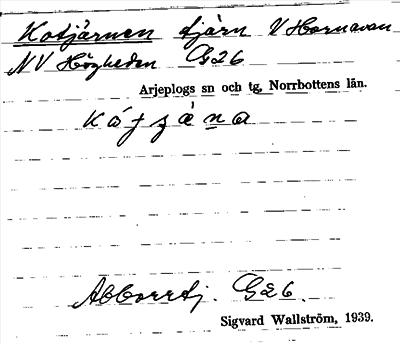 Kotjärnen tjärn V Hornavan
NV Högheden G26
Arjeplogs sn och tg, Norrbottens län.
Abborrtj. G26.
Sigvard Wallström, 1939.